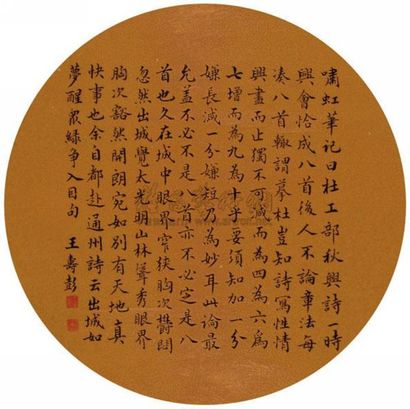 嘯虹筆記曰杜工部秋興詩一時
興會恰成八首後人不論章法每
湊八首輒謂摹杜豈知詩寫性情
興盡而止獨不可減而為四為六為
七增而為九為十乎要須知加一分
嫌長減一分嫌短乃為妙耳此論最
允蓋不必不是八首亦不必定是八
首也久在城中眼界窄狹胸次欝悶
忽然出城覺大光明山林聳秀眼界
胸次豁然開朗宛如別有天地真
快事也余自都赴通州詩云出城如
夢醒眾綠爭入目句
王壽彭